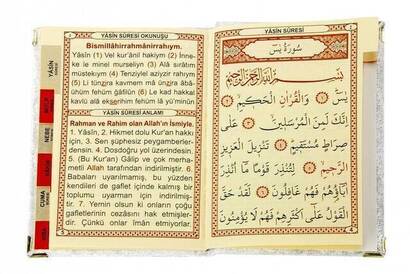 YÂSİN SÛRESİ OKUNUŞU
Bismillâhirrahmânirrahıym.
Yâsîn (1) Vel kur'ânil hakiym (2) İnne-
ke le minel murseliyn (3) Alâ sırâtim
müstekıym (4) Tenziylel aziyzir rahıym
(5) Li tünzira kavmem mâ ünzira âbâü-
hüm fehüm ğâfilûn (6) Le kad hakkal
kavlü alâ ekserihim fehüm lâ yü'minûn
YÂSİN SÛRESİ ANLAMI
Rahman ve Rahim olan Allah'ın İsmiyle.
1. Yâsîn, 2. Hikmet dolu Kur'an hakkı
için, 3. Sen şüphesiz peygamberler-
densin. 4. Dosdoğru yol üzerindesin.
5. (Bu Kur'an) Gâlip ve çok merha-
metli Allah tarafından indirilmiştir. 6.
Babaları uyarılmamış, bu yüzden
kendileri de gaflet içinde kalmış bir
toplumu uyarman için indirilmiş-
tir. 7. Yernin olsun ki onların çoğu
gafletlerinin cezasını hak etmişler-
dir. Çünkü onlar îmân etmiyorlar.
YÂSİN
NEBE
CUMA
YÂSİN SÛRESİ
سُورَةُ يٰسٓ
بِسْمِ اللّٰهِ الرَّحْمٰنِ الرَّحِيمِ
يٰسٓ ﴿١﴾ وَالْقُرْاٰنِ الْحَكِيمِ ﴿٢﴾
اِنَّكَ لَمِنَ الْمُرْسَلِينَ ﴿٣﴾ عَلٰى
صِرَاطٍ مُسْتَقِيمٍ ﴿٤﴾ تَنْزِيلَ الْعَزِيزِ
الرَّحِيمِ ﴿٥﴾ لِتُنْذِرَ قَوْمًا مَٓا اُنْذِرَ
اٰبَٓاؤُهُمْ فَهُمْ غَافِلُونَ ﴿٦﴾ لَقَدْ حَقَّ
الْقَوْلُ عَلٰٓى اَكْثَرِهِمْ فَهُمْ لَا يُؤْمِنُونَ